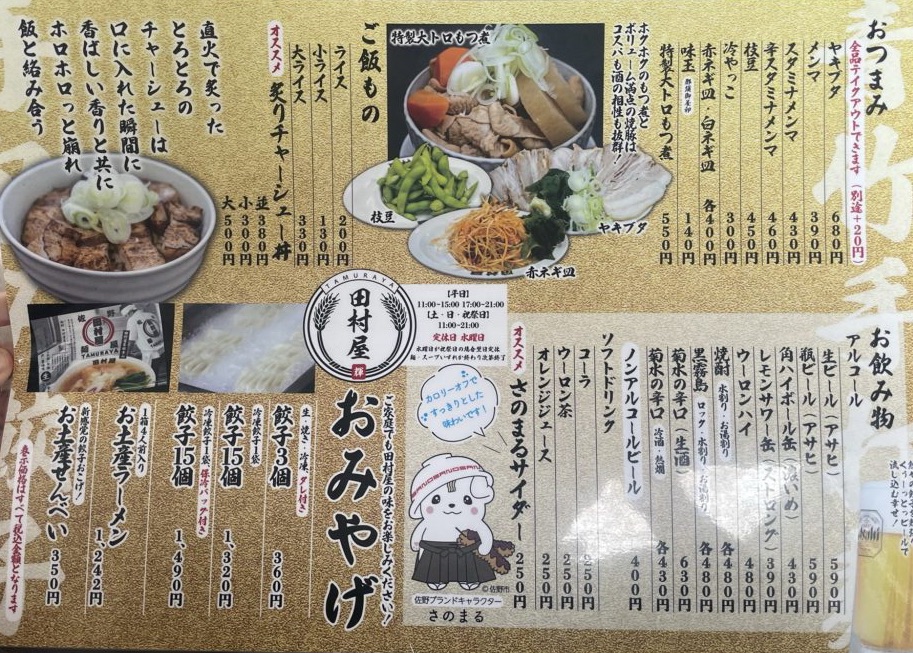 おつまみ
全品テイクアウトできます(別途+20円)
ヤキブタ 680円
メンマ 390円
スタミナメンマ 430円
辛スタミナメンマ 460円
枝豆 450円
冷やっこ 300円
赤ネギ皿・白ネギ皿 各400円
味玉 那須御養卵 140円
特製大トロもつ煮 550円
ホクホクのもつ煮と
ボリューム満点の焼豚は
コスパも酒の相性も抜群!
特製大トロもつ煮
枝豆
ヤキブタ
赤ネギ皿
ご飯もの
ライス 200円
小ライス 150円
大ライス 330円
オススメ
炙りチャーシュー丼
並380円
小300円
大500円
直火で炙った
とろとろの
チャーシューは
口に入れた瞬間に
香ばしい香りと共に
ホロホロっと崩れ
飯と絡み合う
お飲み物
アルコール
生ビール(アサヒ) 590円
瓶ビール(アサヒ) 590円
角ハイボール缶(濃いめ) 430円
レモンサワー缶(ストロング) 390円
ウーロンハイ 480円
焼酎 水割り・お湯割り 各480円
黒霧島 ロック・水割り・お湯割り 各480円
菊水の辛口(生酒) 630円
菊水の辛口 冷酒・熱燗 各430円
ノンアルコールビール 400円
ソフトドリンク
コーラ 250円
ウーロン茶 250円
オレンジジュース 250円
オススメ
さのまるサイダー 250円
カロリーオフで
すっきりとした
味わいです!
©佐野市
佐野ブランドキャラクター
さのまる
Asahi
TAMURAYA
田村屋
輝
【平日】
11:00~15:00 17:00~21:00
【土・日・祝祭日】
11:00~21:00
定休日 水曜日
水曜日が祝祭日の場合翌日定休
麺・スープいずれか終わり次第終了
ご家庭でも田村屋の味をお楽しみください!
おみやげ
生・焼き・冷凍、タレ付き
餃子3個 360円
冷凍餃子1袋
餃子15個 1,320円
冷凍餃子1袋 保冷バッグ付き
餃子15個 1,490円
1箱4人前入り
お土産ラーメン 1,242円
新感覚の餃子おこげ!
お土産せんべい 350円
表示価格はすべて税込金額となります